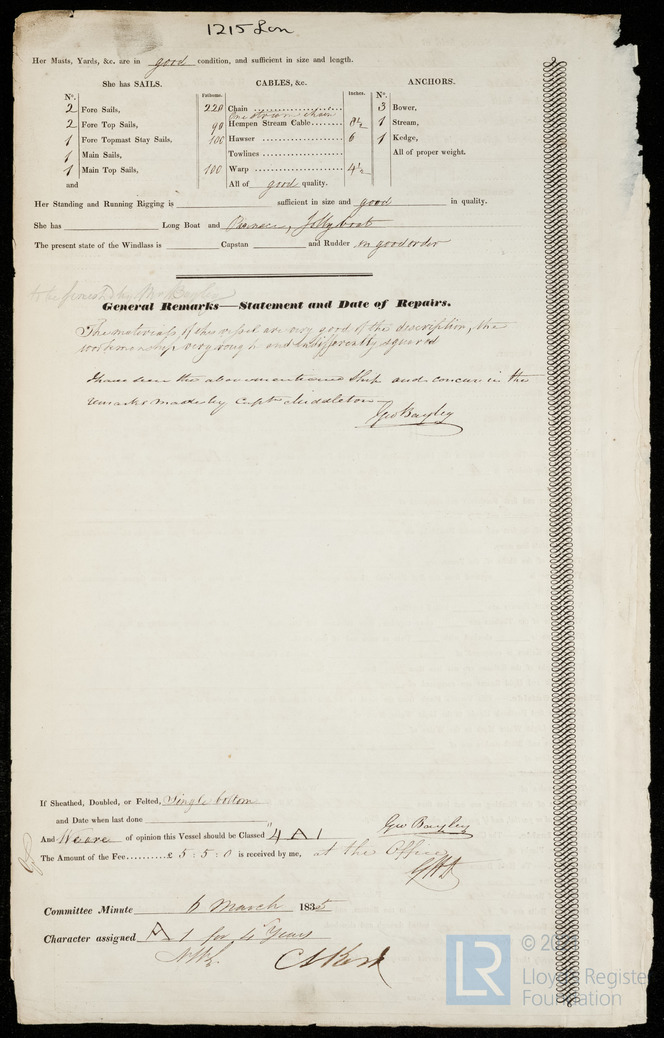 1215 Lon
Her Masts, Yards, &c. are in good condition, and sufficient in size and length.
She has SAILS.
No.
2 Fore Sails,
2 Fore Top Sails,
1 Fore Topmast Stay Sails,
1 Main Sails,
1 Main Top Sails,
and
CABLES, &c.
Fathoms. Inches.
220 Chain
One Stream chain
90 Hempen Stream Cable 8½
100 Hawser 6
Towlines
100 Warp 4½
All of good quality.
ANCHORS.
No.
3 Bower,
1 Stream,
1 Kedge,
All of proper weight.
Her Standing and Running Rigging is sufficient in size and good in quality.
She has Long Boat and Pinnace, Jollyboat
The present state of the Windlass is Capstan and Rudder in good order
to be by Mr Bayley
General Remarks—Statement and Date of Repairs.
The materials of this vessel are very good of the description, the
workmanship very rough and indifferently squared
I have seen the above mentioned Ship and concur in the
remarks made by Capt Middleton
Geo Bayley
If Sheathed, Doubled, or Felted, Single bottom
and Date when last done
And We are of opinion this Vessel should be Classed 4 A 1
Geo Bayley
The Amount of the Fee £ 5 : 5 : 0 is received by me, at the Office
Committee Minute 6 March 1835
Character assigned A 1 for 4 Years
LR
© 20
Lloyd's Register
Foundation